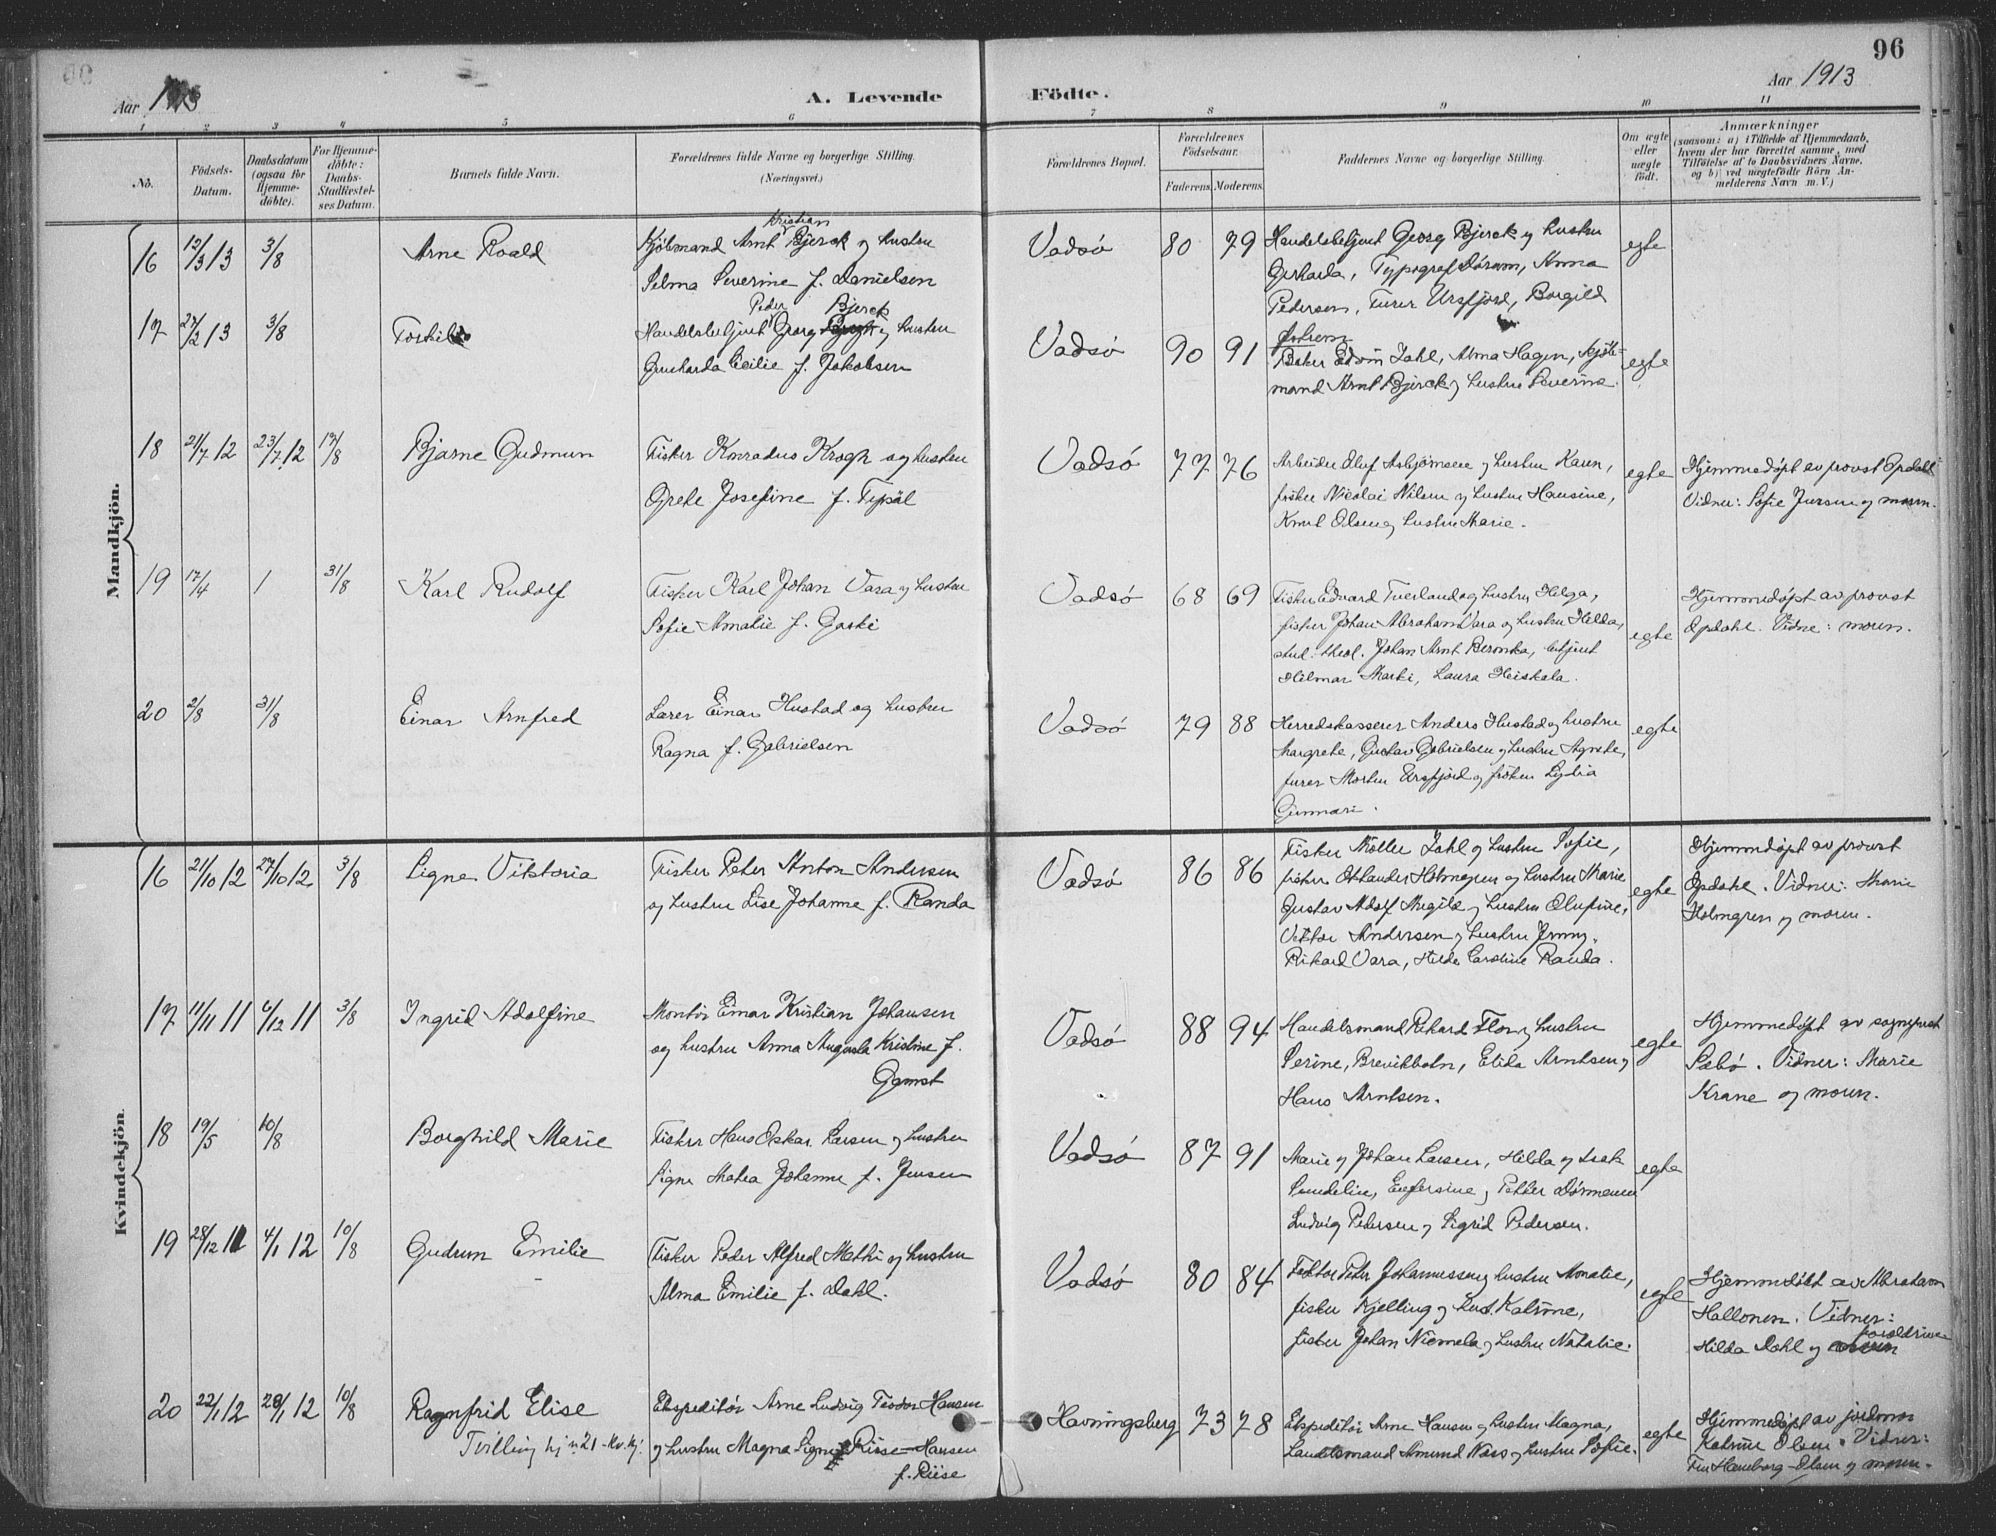 96
Aar 1913
A. Levende
Födte.
Aar 1913
1 2 3 4 5 6 7 8 9 10 11
No.
Födsels-
Datum.
Daabsdatum
(ogsaa for
Hjemme-
döbte).
For Hjemme-
döbte:
Daabs-
Stadfæstel-
ses Datum.
Barnets fulde Navn.
Forældrenes fulde Navne og borgerlige Stilling.
(Næringsvei.)
Forældrenes Bopæl.
Forældrenes
Födselsaar.
Faderens. Moderens.
Faddernes Navne og borgerlige Stilling.
Om ægte
eller
uægte
født.
Anmærkninger
(saasom: a) i Tilfælde af Hjemmedaab,
hvem der har forrettet samme, med
Tilföielse af to Daabsvidners Navne,
og b) ved uægtefödte Börn An-
melderens Navn m. V.)
Mandkjön.
16 12/3 13 3/8 Arne Roald
Kristian
Kjøbmand Arnt Bjerck og hustru
Selma Severine f. Danielsen
Vadsö 80 79
Handelsbetjent Georg Bjerck og hustru
Gerharda, Typograf Dørum, Anna
Pedersen, Furer Ursfjord, Borgild
egte
17 27/2 13 3/8 Torkil
Peder Bjerck
Handelsbetjent Georg og hustru
Gerharda Cecilie f. Jakobsen
Vadsö 90 91
Baker Edvin Dahl, Alma Hagen, kjøb-
mand Arnt Bjerck og hustru Severine.
egte
18 21/7 12 23/7 12 17/8 Bjarne Gudmun
Fisker Konradus Krogh og hustru
Grete Josefine f. Typöl
Vadsö 77 76
Arbeider Oluf Asbjörnsen og hustru Karen,
fisker Nicolai Nilsen og hustru Hansine,
Knut Olsen og hustru Marie.
egte
Hjemmedøpt av provst Opdahl
Vidner: Sofie Jensen og moren.
19 17/4 1 31/8 Karl Rudolf
Fisker Karl Johan Vara og hustru
Sofie Amalie f. Gaski
Vadsö 68 69
Fisker Edvard Tverland og hustru Helga,
fisker Johan Abraham Vara og hustru Hilda,
stud. theol. Johan Arnt Beronka, betjent
Hilmar Marki, Laura Heiskala.
egte
Hjemmedøpt av provst
Opdahl. Vidne: moren.
20 2/8 31/8 Einar Arnfred
Lærer Einar Hustad og hustru
Ragna f. Gabrielsen
Vadsö 79 88
Herredskasserer Anders Hustad og hustru
Margrete, Gustav Gabrielsen og hustru Agnete,
furer Morten Ursfjord og frøken Lydia
Gunnari.
egte
Kvindekjön.
16 21/10 12 27/10 12 3/8 Signe Viktoria
Fisker Peter Anton Andersen
og hustru Lise Johanne f. Randa
Vadsö 86 86
Fisker Möller Dahl og hustru Sofie,
fisker Oskander Holmgren og hustru Marie
Gustav Adolf og hustru Olufine,
Viktor Andersen og hustru Jenny.
Rikard Vara, Hilda Caroline Randa.
egte
Hjemmedøpt av provst
Opdahl. Vidner: Marie
Holmgren og moren.
17 11/11 11 6/12 11 3/8 Ingrid Adolfine
Montör Einar Kristian Johansen
og hustru Anna Augusta Kristine f.
Gamst
Vadsö 88 94
Handelsmand Rikard Flor og hustru
Serine, Brevikholn, Elida Arntsen og
Hans Arntsen.
egte
Hjemmedøpt av sogneprest
Sæbö. Vidner: Marie
Krane og moren.
18 19/5 10/8 Borghild Marie
Fisker Hans Oskar Larsen og hustru
Signe Mathea Johanne f. Jensen
Vadsö 87 91
Marie og Johan Larsen, Hilda og Isak
Sundelin, Eufrosine og Petter Dørmænen
Ludvig Pedersen og Sigrid Pedersen.
egte
19 28/12 11 4/1 12 10/8 Gudrun Emilie
Fisker Peder Alfred Methi og hustru
Alma Emilie f. Dahl.
Vadsö 80 84
Faktor Peter Johannessen og hustru Monatie,
fisker Kjelling og hust. Katrine,
fisker Johan Niemela og hustru Natalie.
egte
Hjemmedøbt av Abraham
Hallonen. Vidner:
forældrene
Hilda Dahl og moren
20 22/1 12 28/1 12 10/8 Ragnfrid Elise
Tvilling hj n 21 - kv.kj.
Ekspeditör Arne Ludvig Teodor Hansen
og hustru Magna Signe Riise-Hansen
f. Riise
Havningsberg 73 78
Ekspeditör Arne Hansen og hustru Magna,
Landhandler Amund Næss og hustru Sofie.
egte
Hjemmedøpt av jordmor
Katrine Olsen. Vidner:
Fru Haneborg-Olsen og moren.